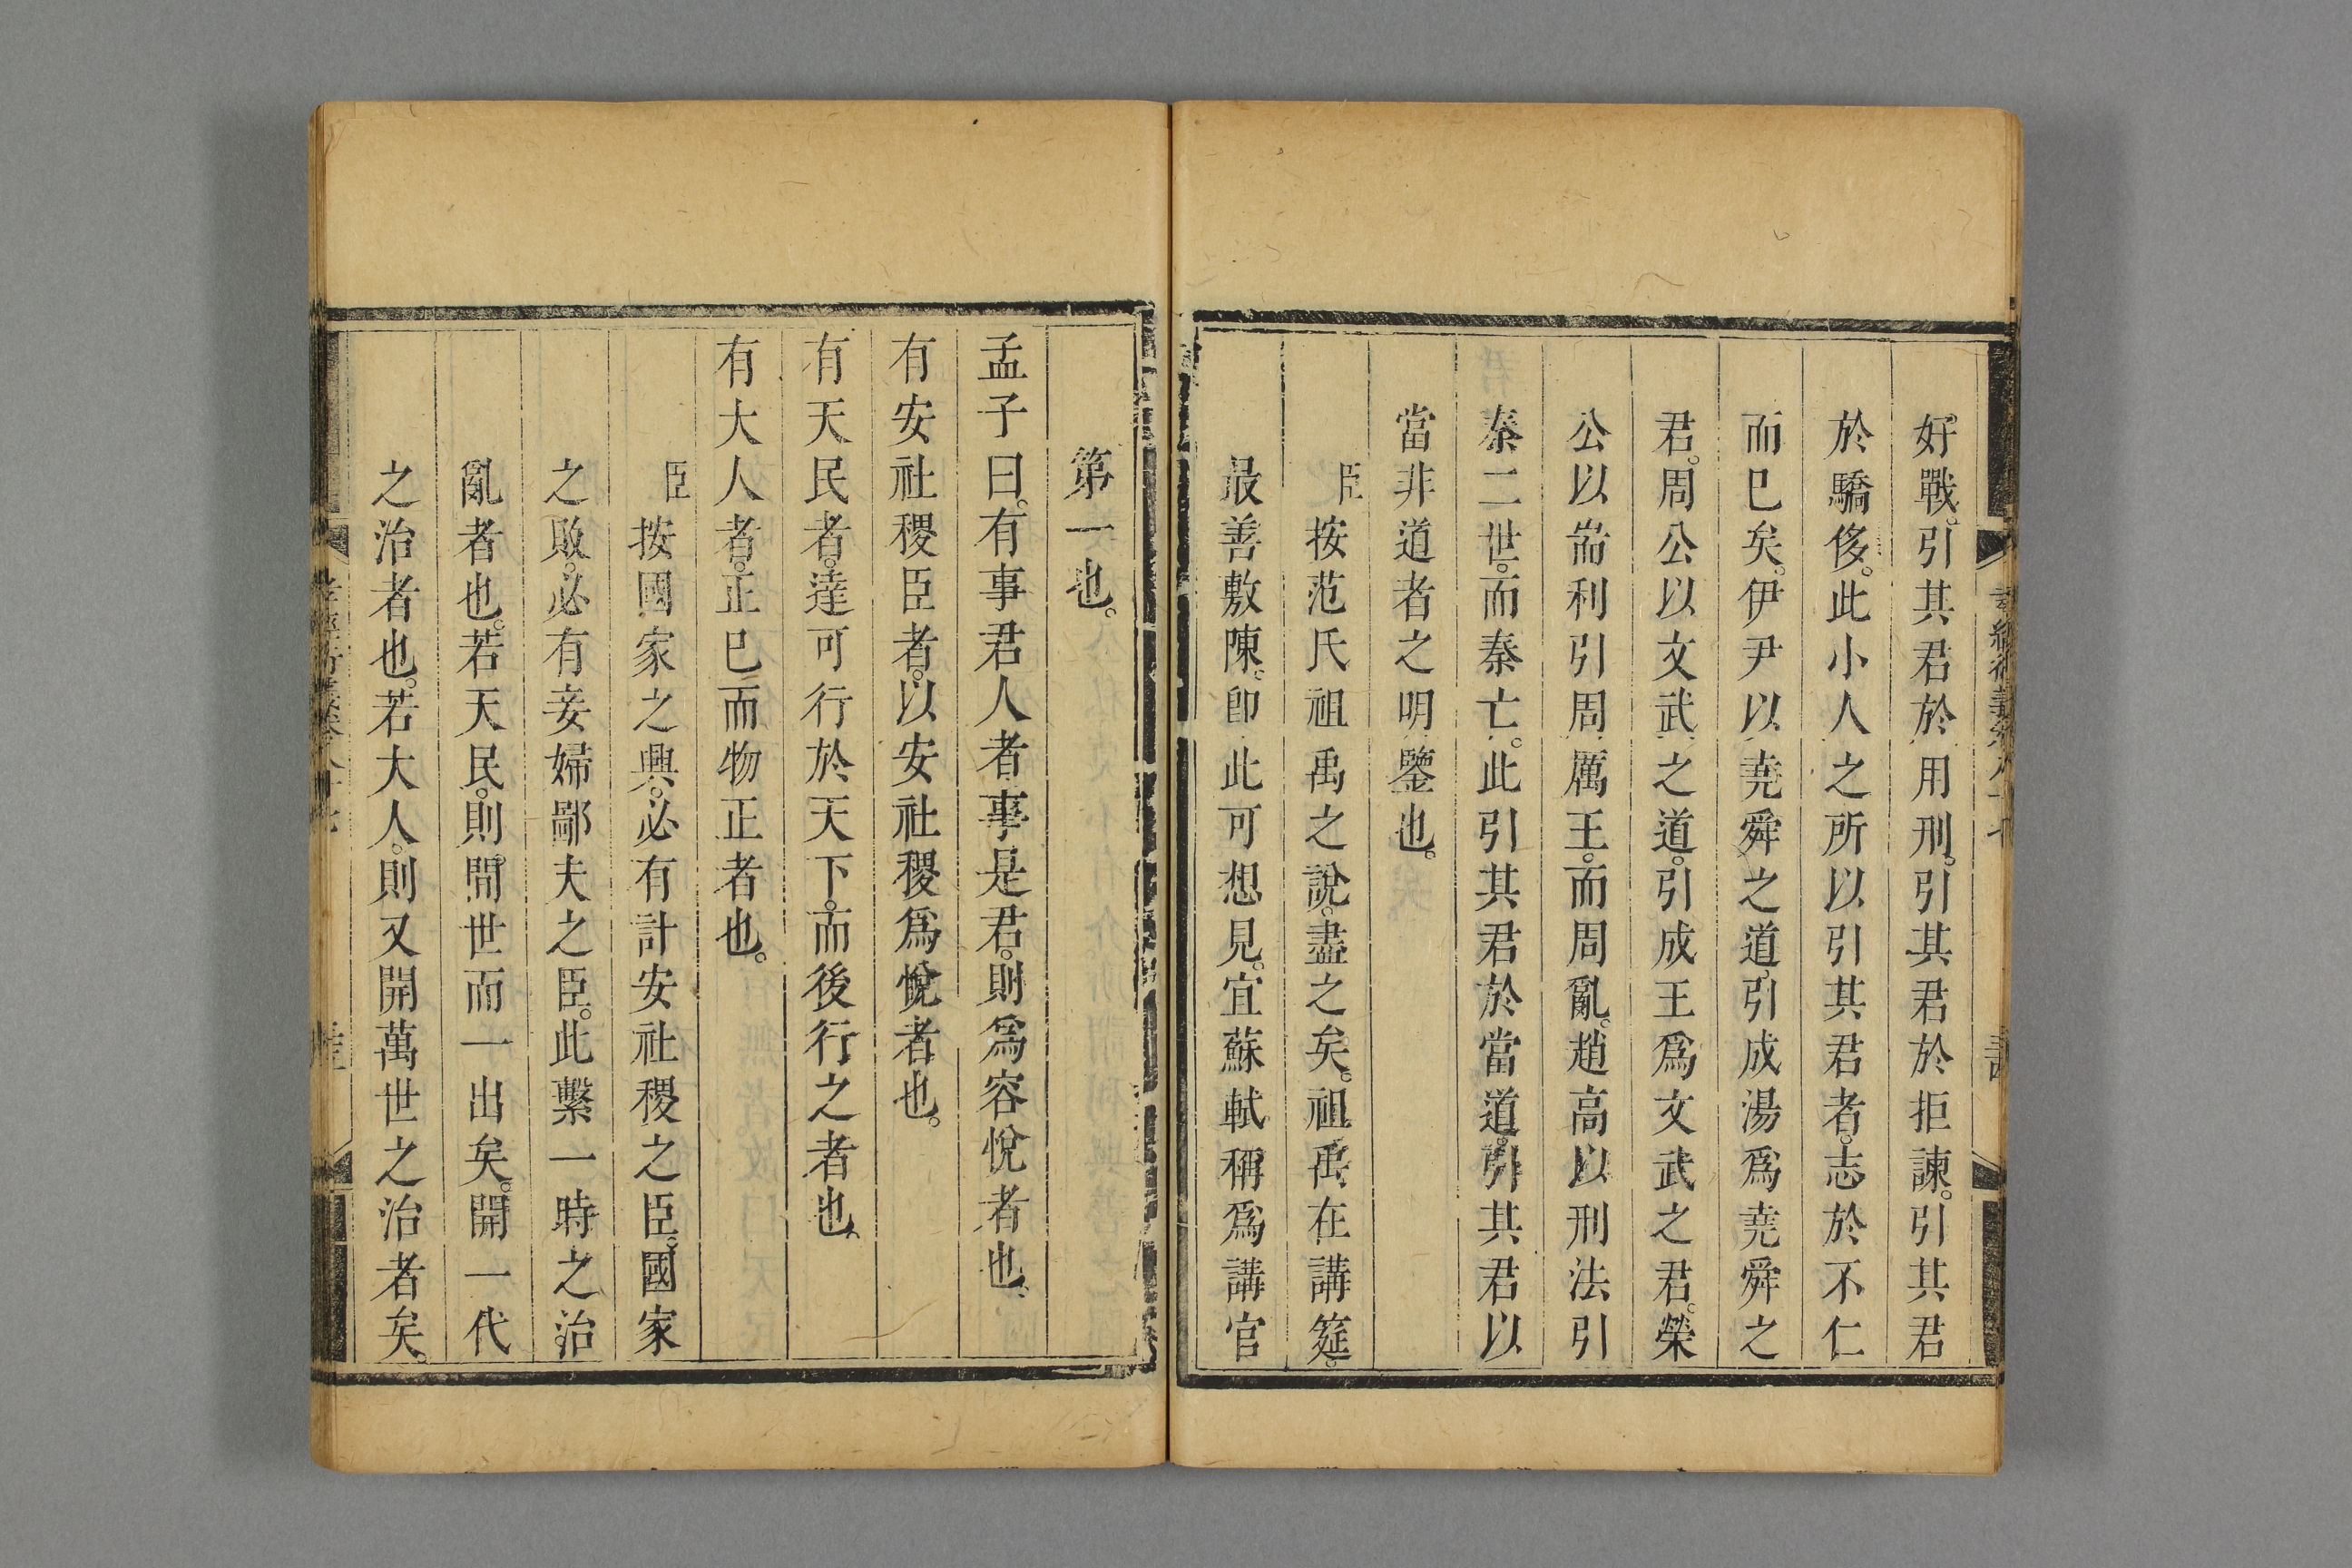 好戰。引其君於用刑。引其君於拒諫。引其君
於驕侈。此小人之所以引其君者。志於不仁
而已矣。伊尹以堯舜之道。引成湯爲堯舜之
君。周公以文武之道。引成王爲文武之君。榮
公以耑利引周厲王。而周亂。趙高以刑法引
秦二世。而秦亡。此引其君於當道。引其君以
當非道者之明鑒也。
臣按范氏祖禹之說。盡之矣。祖禹在講筵。
最善敷陳。卽此可想見。宜蘇軾稱爲講官
第一也。
孟子曰。有事君人者。事是君。則爲容悅者也。
有安社稷臣者。以安社稷爲悅者也。
有天民者。達可行於天下。而後行之者也。
有大人者。正已而物正者也。
臣按國家之興。必有計安社稷之臣。國家
之敗。必有妾婦鄙夫之臣。此繫一時之治
亂者也。若天民。則。間世而一出矣。開一代
之治者也。若大人。則又開萬世之治者矣。